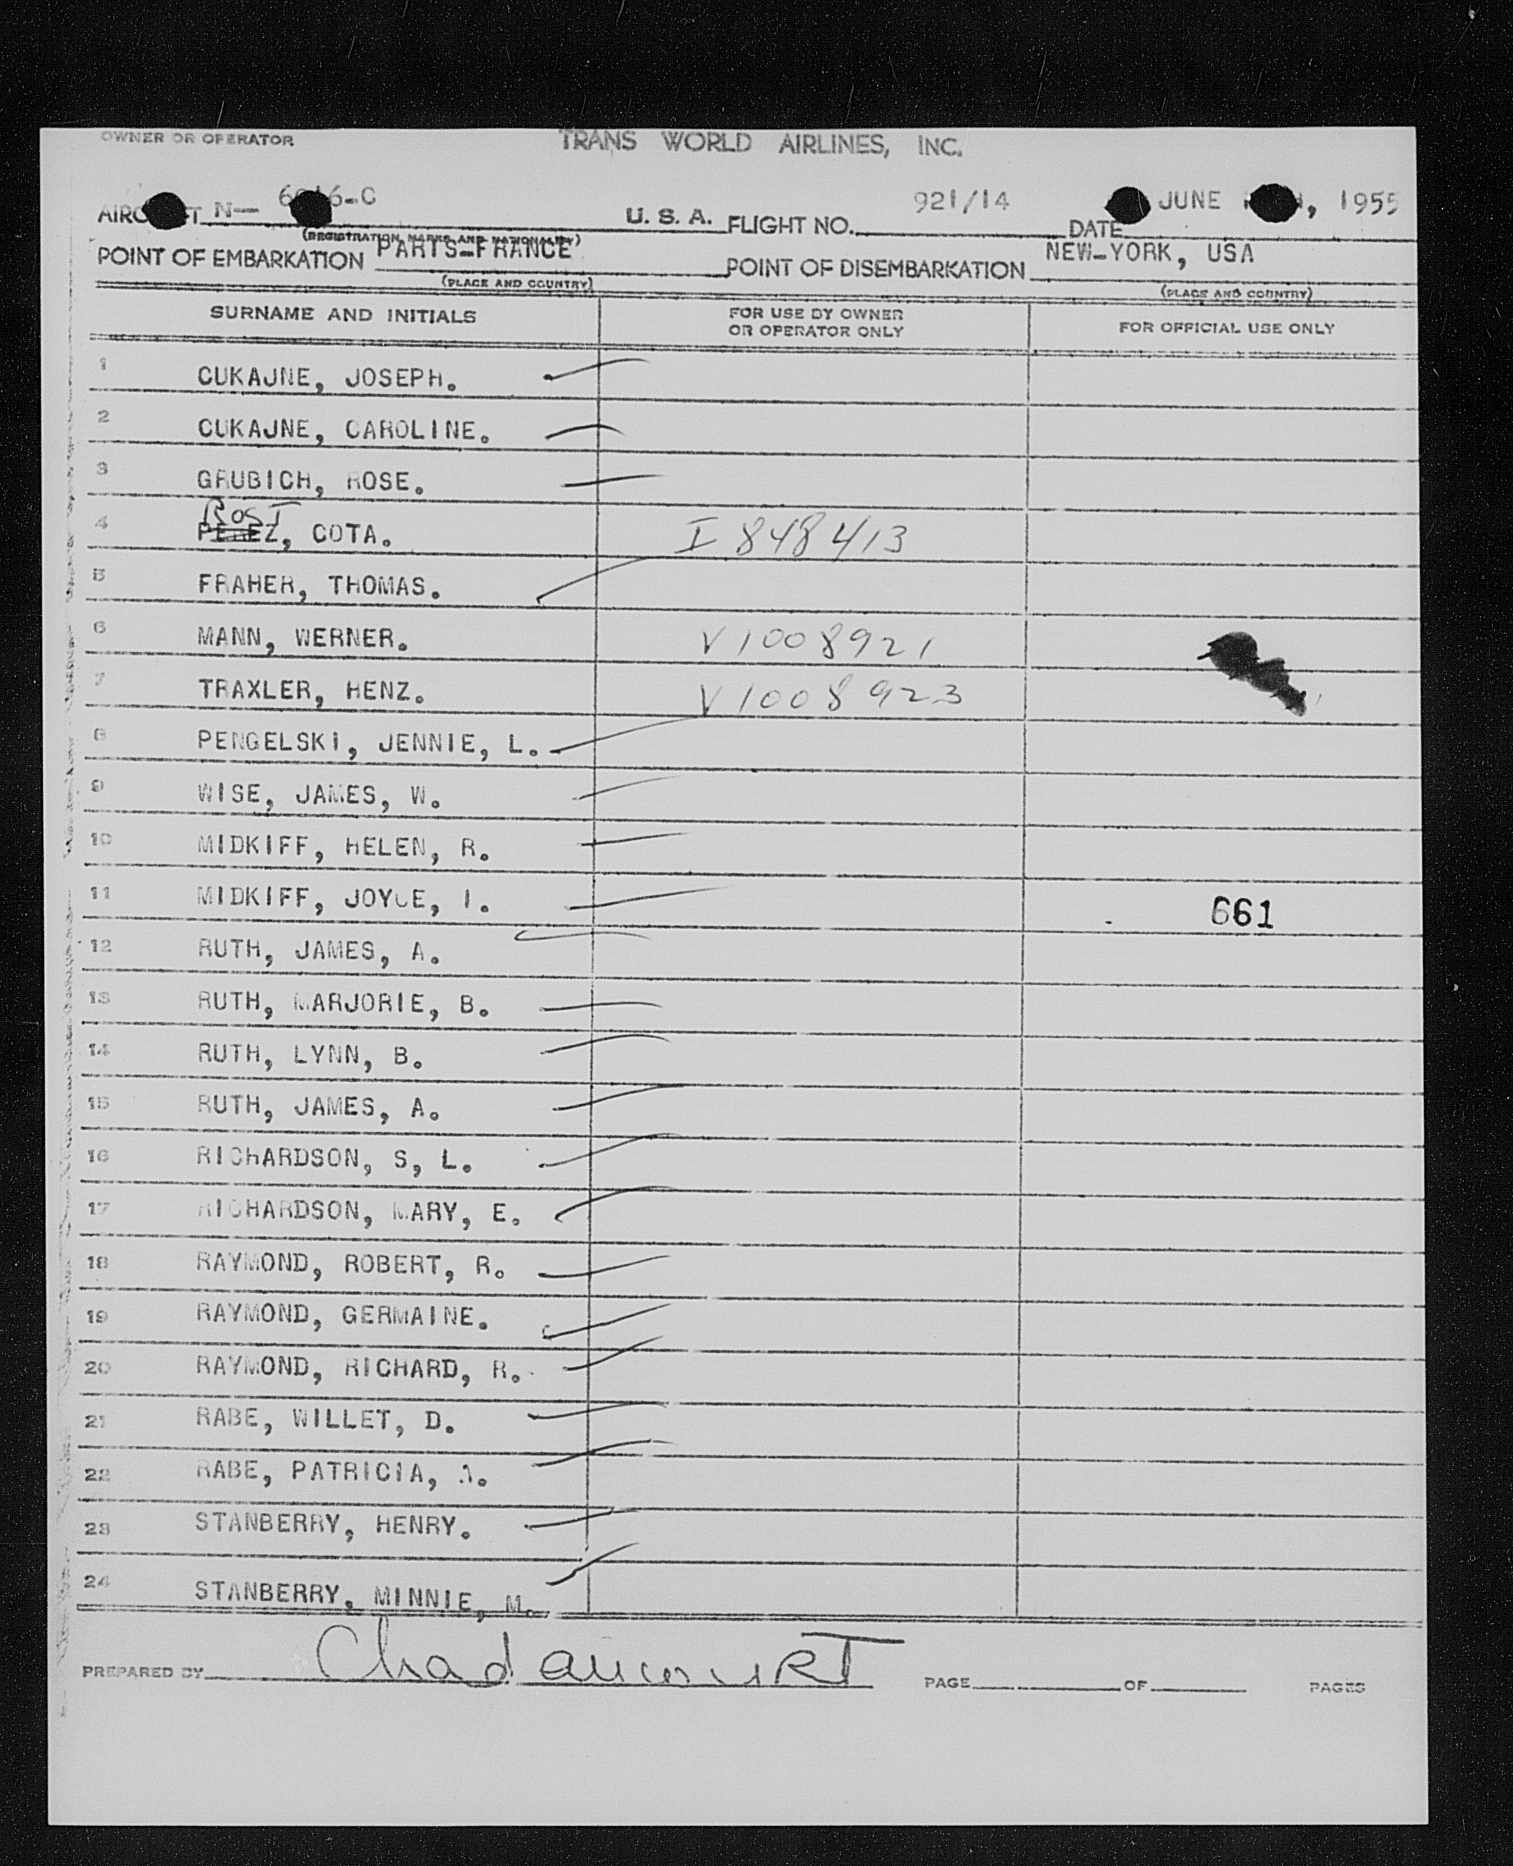 OWNER OR OPERATOR TRANS WORLD AIRLINES, INC.
N— U. S. A. FLIGHT NO. 921/14 DATE JUNE , 1955
(REGISTRATION MARKS AND NATIONALITY)
POINT OF EMBARKATION PARIS-FRANCE POINT OF DISEMBARKATION NEW-YORK, USA
(PLACE AND COUNTRY) (PLACE AND COUNTRY)
SURNAME AND INITIALS FOR USE BY OWNER OR OPERATOR ONLY FOR OFFICIAL USE ONLY
1 CUKAJNE, JOSEPH.
2 CUKAJNE, CAROLINE.
3 GRUBICH, ROSE.
ROST
4 PEREZ, COTA. I 848413
5 FRAHER, THOMAS.
6 MANN, WERNER. V1008921
7 TRAXLER, HENZ. V1008923
8 PENGELSKI, JENNIE, L.
9 WISE, JAMES, W.
10 MIDKIFF, HELEN, R.
11 MIDKIFF, JOYCE, I. 661
12 RUTH, JAMES, A.
13 RUTH, MARJORIE, B.
14 RUTH, LYNN, B.
15 RUTH, JAMES, A.
16 RICHARDSON, S, L.
17 RICHARDSON, MARY, E.
18 RAYMOND, ROBERT, R.
19 RAYMOND, GERMAINE.
20 RAYMOND, RICHARD, R.
21 RABE, WILLET, D.
22 RABE, PATRICIA, A.
23 STANBERRY, HENRY.
24 STANBERRY, MINNIE, M.
PREPARED BY PAGE OF PAGES